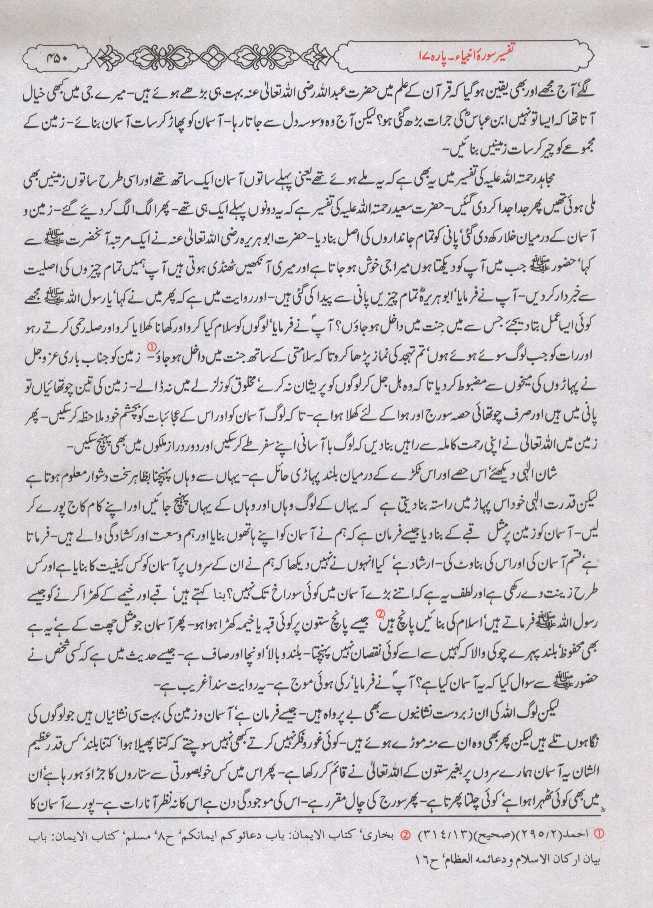 ۴۵۰
تفسیر سورۂ انبیاء۔ پارہ ۱۷
لگے‘ آج مجھے اور بھی یقین ہو گیا کہ قرآن کے علم میں حضرت عبداللہ رضی اللہ تعالیٰ عنہ بہت ہی بڑھے ہوئے ہیں۔ میرے جی میں کبھی خیال
آتا تھا کہ ایسا تو نہیں ابن عباسؓ کی جرات بڑھ گئی ہو؟ لیکن آج وہ وسوسہ دل سے جاتا رہا۔ آسمان کو پھاڑ کر سات آسمان بنائے۔ زمین کے
مجموعے کو چیر کر سات زمینیں بنائیں۔
مجاہد رحمتہ اللہ علیہ کی تفسیر میں یہ بھی ہے کہ یہ ملے ہوئے تھے یعنی پہلے ساتوں آسمان ایک ساتھ تھے اور اسی طرح ساتوں زمینیں بھی
ملی ہوئی تھیں پھر جدا جدا کر دی گئیں۔ حضرت سعید رحمتہ اللہ علیہ کی تفسیر ہے کہ یہ دونوں پہلے ایک ہی تھے۔ پھر الگ الگ کر دیئے گئے۔ زمین و
آسمان کے درمیان خلا رکھ دی گئی‘ پانی کو تمام جانداروں کی اصل بنا دیا۔ حضرت ابو ہریرہ رضی اللہ تعالیٰ عنہ نے ایک مرتبہ آنحضرت ﷺ سے
کہا‘ حضور ﷺ جب میں آپ کو دیکھتا ہوں میرا جی خوش ہو جاتا ہے اور میری آنکھیں ٹھنڈی ہوتی ہیں آپ ہمیں تمام چیزوں کی اصلیت
سے خبردار کر دیں۔ آپ نے فرمایا‘ ابو ہریرہؓ تمام چیزیں پانی سے پیدا کی گئی ہیں۔ اور روایت میں ہے کہ پھر میں نے کہا‘ یا رسول اللہ ﷺ مجھے
کوئی ایسا عمل بتا دیجئے جس سے میں جنت میں داخل ہو جاؤں؟ آپؐ نے فرمایا‘ لوگوں کو سلام کیا کرو اور کھانا کھلایا کرو اور صلہ رحمی کرتے رہو
اور رات کو جب لوگ سوئے ہوئے ہوں‘ تم تہجد کی نماز پڑھا کرو تا کہ سلامتی کے ساتھ جنت میں داخل ہو جاؤ ①۔ زمین کو جناب باری عزوجل
نے پہاڑوں کی میخوں سے مضبوط کر دیا تا کہ وہ ہل جل کر لوگوں کو پریشان نہ کرے‘ مخلوق کو زلزلے میں نہ ڈالے۔ زمین کی تین چوتھائیاں تو
پانی میں ہیں اور صرف چوتھائی حصہ سورج اور ہوا کے لئے کھلا ہوا ہے۔ تا کہ لوگ آسمان کو اور اس کے عجائبات کو بچشم خود ملاحظہ کر سکیں۔ پھر
زمین میں اللہ تعالیٰ نے اپنی رحمت کاملہ سے راہیں بنا دیں کہ لوگ بآسانی اپنے سفر طے کر سکیں اور دور دراز ملکوں میں بھی پہنچ سکیں۔
شان الٰہی دیکھئے‘ اس حصے اور اس ٹکڑے کے درمیان بلند پہاڑی حائل ہے۔ یہاں سے وہاں پہنچنا بظاہر سخت دشوار معلوم ہوتا ہے
لیکن قدرت الٰہی خود اس پہاڑ میں راستہ بنا دیتی ہے کہ یہاں کے لوگ وہاں اور وہاں کے یہاں پہنچ جائیں اور اپنے کام کاج پورے کر
لیں۔ آسمان کو زمین پر مثل قبے کے بنا دیا جیسے فرمان ہے کہ ہم نے آسمان کو اپنے ہاتھوں بنایا اور ہم وسعت اور کشادگی والے ہیں۔ فرماتا
ہے‘ قسم آسمان کی اور اس کی بناوٹ کی۔ ارشاد ہے‘ کیا انہوں نے نہیں دیکھا کہ ہم نے ان کے سروں پر آسمان کو کس کیفیت کا بنایا ہے اور کس
طرح زینت دے رکھی ہے اور لطف یہ ہے کہ اتنے بڑے آسمان میں کوئی سوراخ تک نہیں؟ بنا کہتے ہیں‘ قبے اور خیمے کے کھڑا کرنے کو جیسے
رسول اللہ ﷺ فرماتے ہیں‘ اسلام کی بنائیں پانچ ہیں ② جیسے پانچ ستون پر کوئی قبہ یا خیمہ کھڑا ہوا ہو۔ پھر آسمان جو مثل چھت کے ہے‘ یہ ہے
بھی محفوظ‘ بلند پہرے چوکی والا کہ کہیں سے اسے کوئی نقصان نہیں پہنچتا۔ بلند و بالا‘ اونچا اور صاف ہے۔ جیسے حدیث میں ہے کہ کسی شخص نے
حضور ﷺ سے سوال کیا کہ یہ آسمان کیا ہے؟ آپؐ نے فرمایا‘ رکی ہوئی موج ہے۔ یہ روایت سنداً غریب ہے۔
لیکن لوگ اللہ کی ان زبردست نشانیوں سے بھی بے پرواہ ہیں۔ جیسے فرمان ہے‘ آسمان و زمین کی بہت سی نشانیاں ہیں جو لوگوں کی
نگاہوں تلے ہیں لیکن پھر بھی وہ ان سے منہ موڑے ہوئے ہیں۔ کوئی غور و فکر نہیں کرتے کبھی نہیں سوچتے کہ کتنا پھیلا ہوا‘ کتنا بلند‘ کس قدر عظیم
الشان یہ آسمان ہمارے سروں پر بغیر ستون کے اللہ تعالیٰ نے قائم کر رکھا ہے۔ پھر اس میں کس خوبصورتی سے ستاروں کا جڑاؤ ہو رہا ہے‘ ان
میں بھی کوئی ٹھہرا ہوا ہے‘ کوئی چلتا پھرتا ہے۔ پھر سورج کی چال مقرر ہے۔ اس کی موجودگی دن ہے اس کا نہ نظر آنا رات ہے۔ پورے آسمان کا
① احمد (۲/۲۹۵) (صحیح) (۳۱۴/۱۳) ② بخاری‘ کتاب الایمان: باب دعائو کم ایمانکم‘ ح۸‘ مسلم‘ کتاب الایمان: باب
بیان ارکان الاسلام و دعائمہ العظام‘ ح۱۶